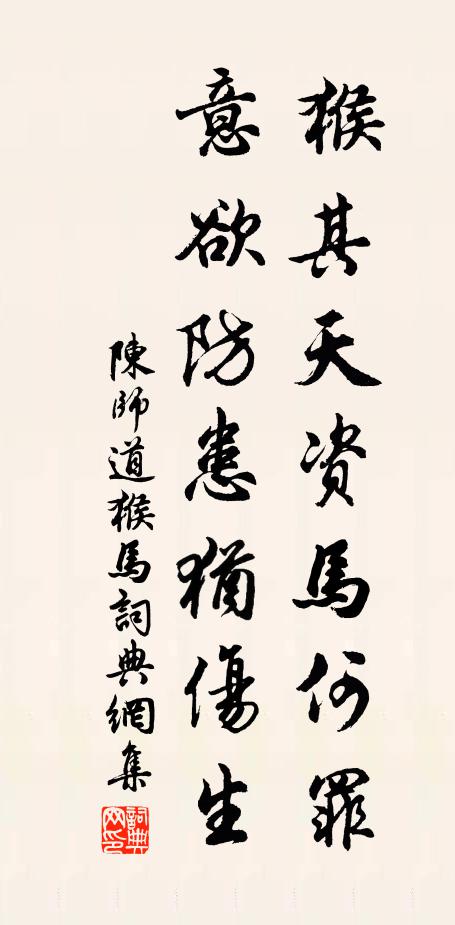 猴其天資馬何罪
意欲防患猶傷生
陳師道猴馬詞典網集
詞典網印